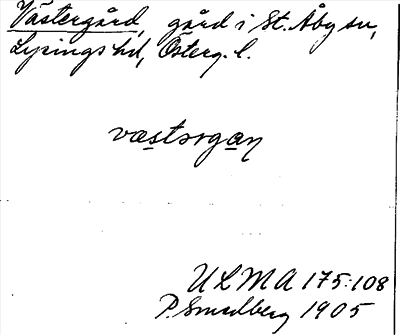 Västergård, gård i St. Åby sn,
Lysings hd, Österg. l.
væstərgan
ULMA 175:108
P. Smedberg 1905